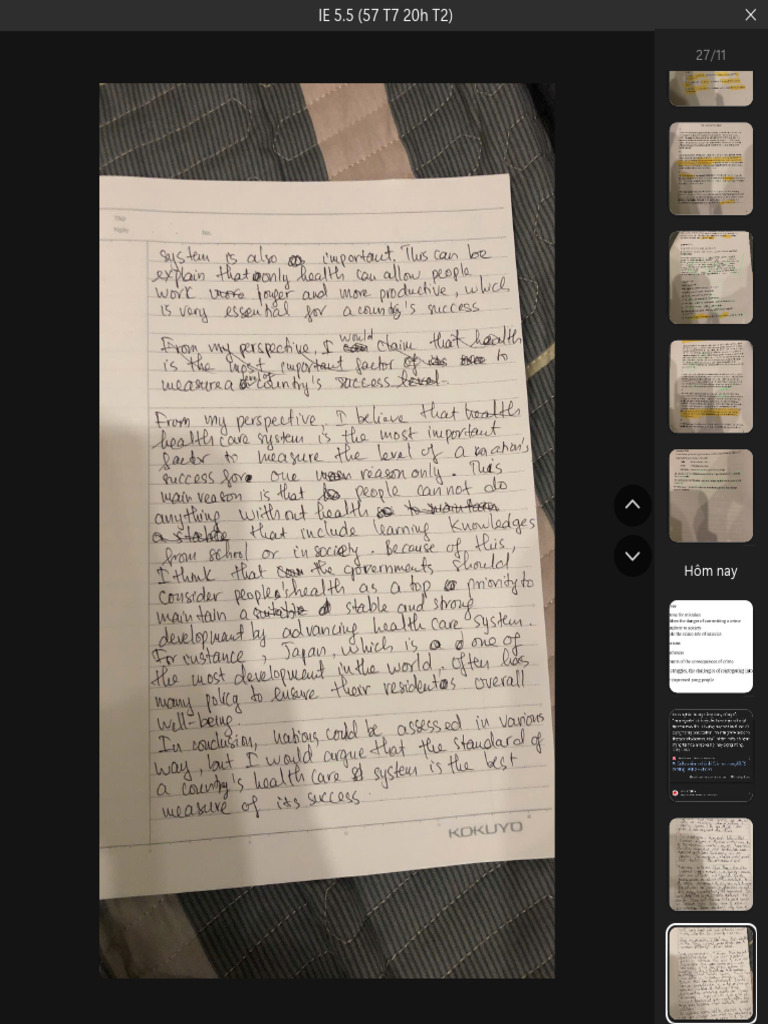 IE 5.5 (57 T7 20h T2)
27/11
Hôm nay
system is also important. This can be
explain that only health can allow people
work longer and more productive, which
is very essential for a country's success
From my perspective, I would claim that health
is the most important factor to
measure a country's success
From my perspective, I believe that
health care system is the most important
factor to measure the level of a nation's
success for one reason only. This
main reason is that people cannot do
anything without health
that include learning knowledges
from school or in society. Because of this,
I think that the governments should
consider people's health as a top priority to
maintain a stable and strong
development by advancing health care system.
For instance, Japan, which is one of
the most development in the world, often has
many policy to ensure their residents overall
well-being.
In conclusion, nations could be assessed in various
way, but I would argue that the standard of
a country's health care system is the best
measure of its success.
KOKUYO